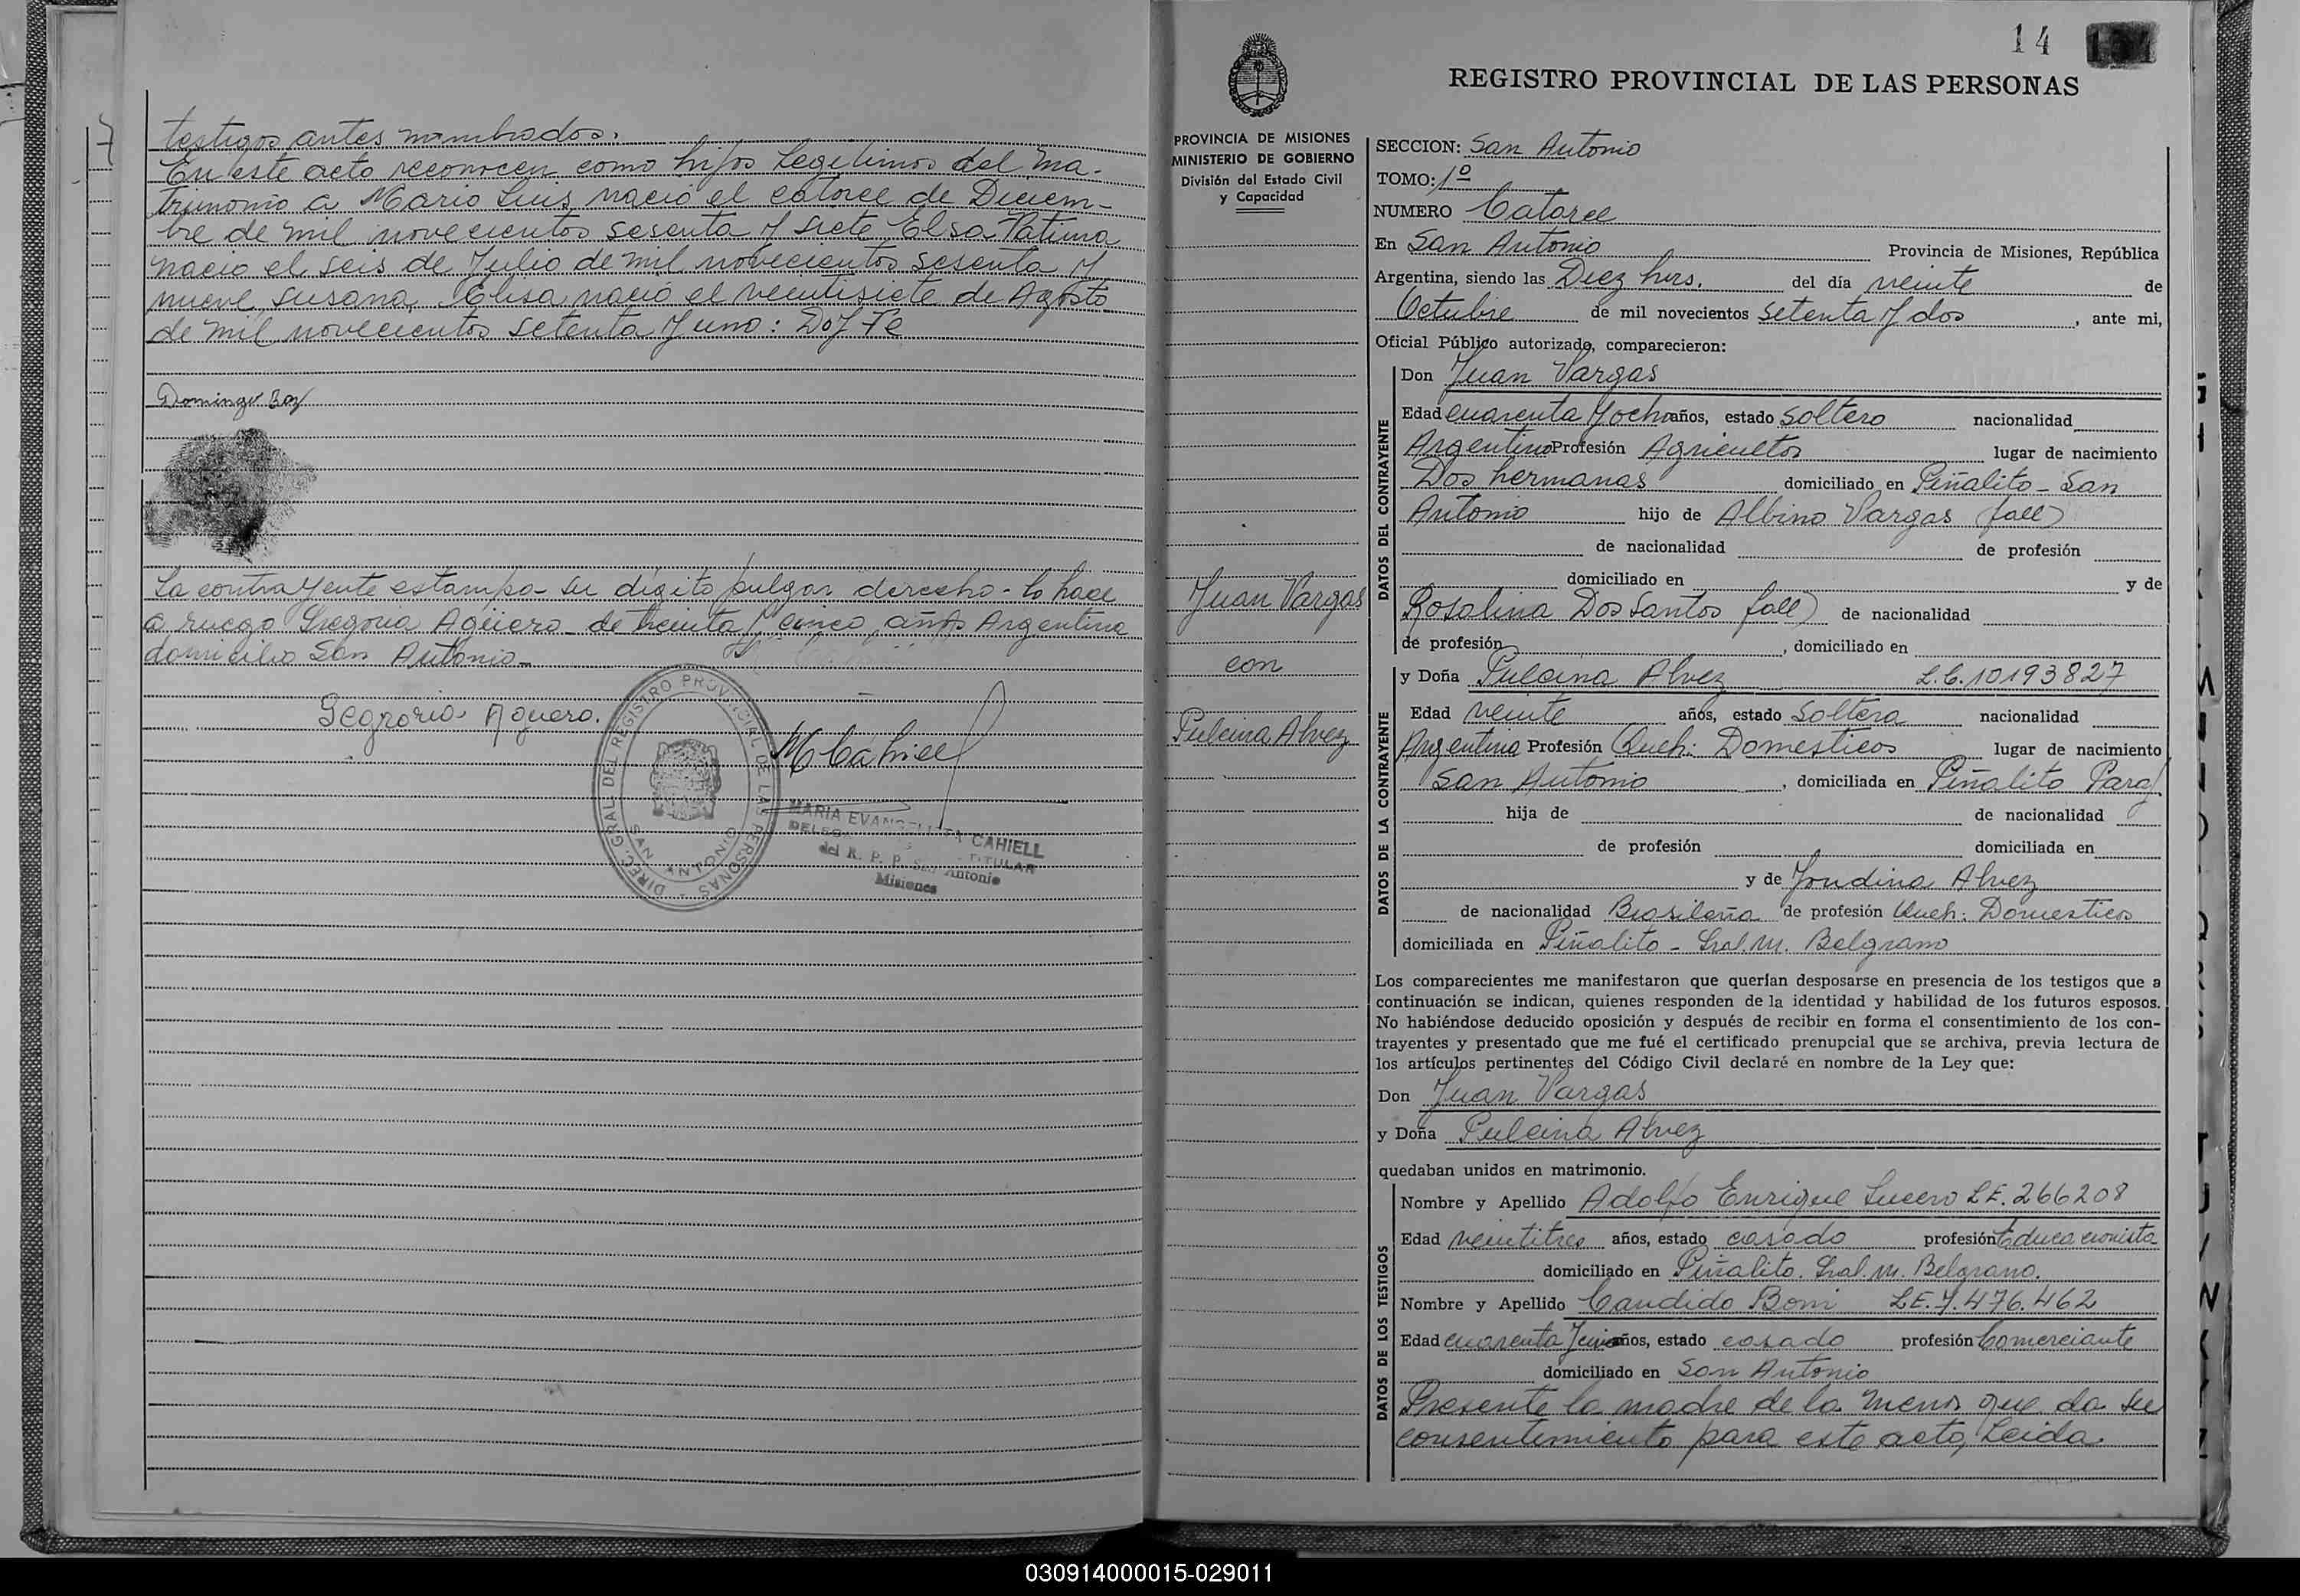 testigos antes nombrados.
En este acto reconocen como hijos legitimos del ma-
trimonio a Mario Luis nació el catorce de Diciem-
bre de mil novecientos sesenta y siete Elsa Fatima
nacio el seis de Julio de mil novecientos sesenta y
nueve, Susana Elisa nació el veintisiete de Agosto
de mil novecientos setenta y uno: Doy Fe
Domingo
La contrayente estampa su digito pulgar derecho - lo hace
a ruego Gregoria Agüero - de treinta y cinco años Argentina
domicilio San Antonio -
Gegroria Aguero.
DIREC. GRAL. DEL REGISTRO PROVINCIAL DE LAS PERSONAS
SAN ANTONIO
M Cahiell
MARIA EVANGELISTA CAHIELL
TITULAR
del R. P. P. San Antonio
Misiones
14
REGISTRO PROVINCIAL DE LAS PERSONAS
PROVINCIA DE MISIONES
MINISTERIO DE GOBIERNO
División del Estado Civil
y Capacidad
Juan Vargas
con
Pulcina Alvez
SECCION: San Antonio
TOMO: 1º
NUMERO Catorce
En San Antonio Provincia de Misiones, República
Argentina, siendo las Diez hrs. del día veinte de
Octubre de mil novecientos setenta y dos, ante mi,
Oficial Público autorizado, comparecieron:
DATOS DEL CONTRAYENTE
Don Juan Vargas
Edad cuarenta y ocho años, estado soltero nacionalidad
Argentino Profesión Agricultor lugar de nacimiento
Dos hermanas domiciliado en Piñalito - San
Antonio hijo de Albino Vargas (fall)
de nacionalidad de profesión
domiciliado en y de
Rosalina Dos Santos fall) de nacionalidad
de profesión , domiciliado en
DATOS DE LA CONTRAYENTE
y Doña Pulcina Alvez L.C. 10193827
Edad veinte años, estado soltera nacionalidad
Argentina Profesión Queh: Domesticos lugar de nacimiento
San Antonio , domiciliada en Piñalito Paraj
hija de de nacionalidad
de profesión domiciliada en
y de Jondina Alvez
de nacionalidad Brasileña de profesión Queh: Domesticos
domiciliada en Piñalito - Gral. M. Belgrano
Los comparecientes me manifestaron que querían desposarse en presencia de los testigos que a
continuación se indican, quienes responden de la identidad y habilidad de los futuros esposos.
No habiéndose deducido oposición y después de recibir en forma el consentimiento de los con-
trayentes y presentado que me fué el certificado prenupcial que se archiva, previa lectura de
los artículos pertinentes del Código Civil declaré en nombre de la Ley que:
Don Juan Vargas
y Doña Pulcina Alvez
quedaban unidos en matrimonio.
DATOS DE LOS TESTIGOS
Nombre y Apellido Adolfo Enrique Lucero L.E. 266208
Edad veintitres años, estado casado profesión Educacionista
domiciliado en Piñalito. Gral. M. Belgrano.
Nombre y Apellido Candido Boni L.E. 7.476.462
Edad cuarenta y años, estado casado profesión Comerciante
domiciliado en San Antonio
Presente la madre de la menor que da su
consentimiento para este acto, Leida
030914000015-029011